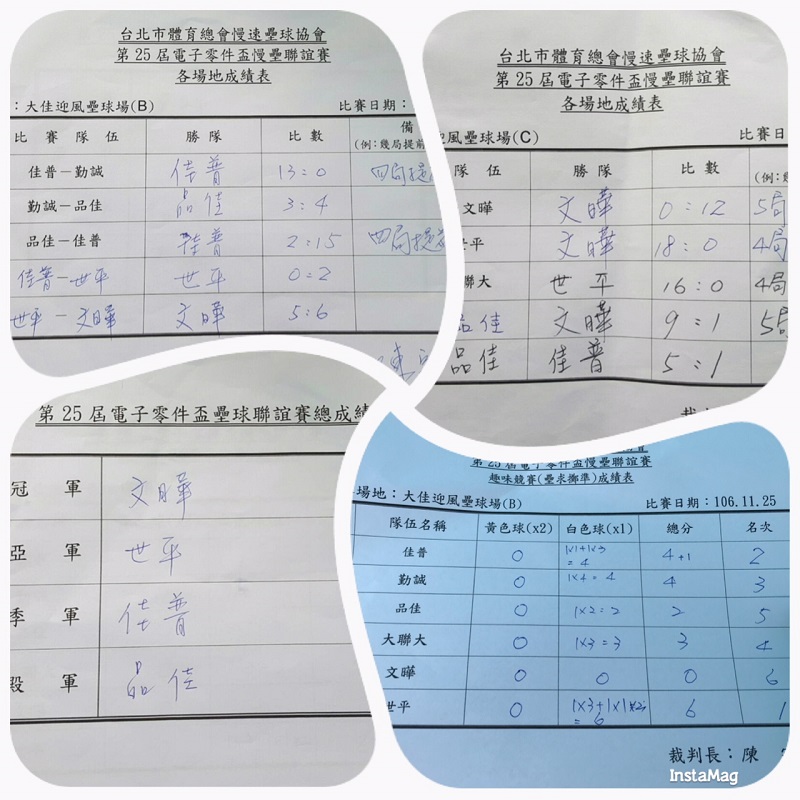 台北市體育總會慢速壘球協會
第25屆電子零件盃慢壘聯誼賽
各場地成績表
：大佳迎風壘球場(B) 比賽日期：
比賽隊伍 勝隊 比數 備
(例：幾局提前
佳普－勤誠 佳普 13:0 四局提
勤誠－品佳 品佳 3:4
品佳－佳普 佳普 2:15 四局提
佳普－世平 世平 0:2
世平－文曄 文曄 5:6
台北市體育總會慢速壘球協會
第25屆電子零件盃慢壘聯誼賽
各場地成績表
迎風壘球場(C) 比賽日
隊伍 勝隊 比數
(例：幾
文曄 文曄 0:12 5局
世平 文曄 18:0 4局
聯大 世平 16:0 4局
品佳 文曄 9:1 5局
品佳 佳普 5:1
第25屆電子零件盃壘球聯誼賽總成績
冠軍 文曄
亞軍 世平
季軍 佳普
殿軍 品佳
第25屆電子零件盃慢壘聯誼賽
趣味競賽(壘求擲準)成績表
場地：大佳迎風壘球場(B) 比賽日期：106.11.25
隊伍名稱 黃色球(x2) 白色球(x1) 總分 名次
佳普 0 1x1+1x3 = 4 4+1 2
勤誠 0 1x4 = 4 4 3
品佳 0 1x2=2 2 5
大聯大 0 1x3=3 3 4
文曄 0 0 0 6
世平 0 1x3+1x1x2 = 6 6 1
裁判長：陳
InstaMag